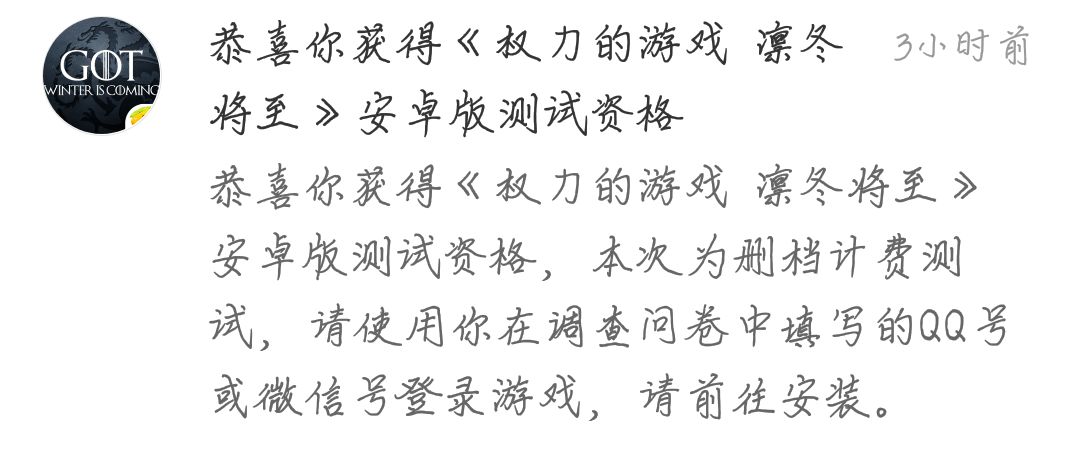 GOT
WINTER IS COMING
恭喜你获得《权力的游戏 凛冬 3小时前
将至》安卓版测试资格
恭喜你获得《权力的游戏 凛冬将至》
安卓版测试资格，本次为删档计费测
试，请使用你在调查问卷中填写的QQ号
或微信号登录游戏，请前往安装。